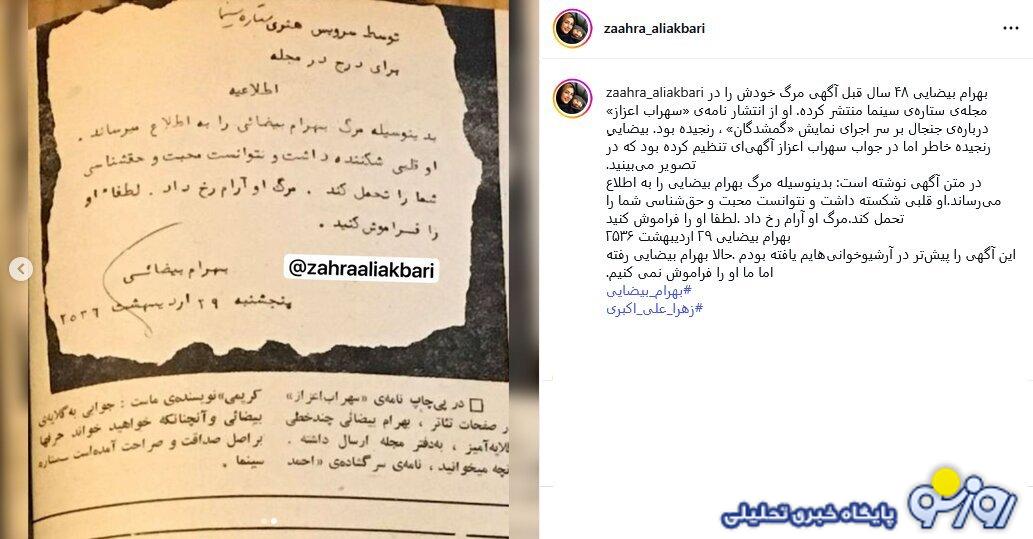 توسط سرویس هنری ستاره سینما
برای درج در مجله
اطلاعیه
بدینوسیله مرگ بهرام بیضائی را به اطلاع میرساند .
او قلبی شکننده داشت و نتوانست محبت و حقشناسی
شما را تحمل کند . مرگ او آرام رخ داد . لطفا" او
را فراموش کنید .
بهرام بیضائی
پنجشنبه ۲۹ اردیبهشت ۲۵۳۶
@zahraaliakbari
در پی‌چاپ نامه‌ی «سهراب‌اعزاز»
ر صفحات تئاتر ، بهرام بیضائی چندخطی
لایه‌آمیز ، به‌دفتر مجله ارسال داشته .
نچه میخوانید ، نامه‌ی سرگشاده‌ی «احمد
کریمی» نویسنده‌ی ماست : جوابی به‌گلایه‌ی
بیضائی وآنچنانکه خواهید خواند حرفها
براصل صداقت و صراحت آمده‌است ستاره
سینما .
zaahra_aliakbari
zaahra_aliakbari بهرام بیضایی ۴۸ سال قبل آگهی مرگ خودش را در
مجله‌ی ستاره‌ی سینما منتشر کرده. او از انتشار نامه‌ی «سهراب اعزاز»
درباره‌ی جنجال بر سر اجرای نمایش «گمشدگان» ، رنجیده بود. بیضاییِ
رنجیده خاطر اما در جواب سهراب اعزاز آگهی‌ای تنظیم کرده بود که در
تصویر می‌بینید.
در متن آگهی نوشته است: بدینوسیله مرگ بهرام بیضایی را به اطلاع
می‌رساند.او قلبی شکسته داشت و نتوانست محبت و حق‌شناسی شما را
تحمل کند.مرگ او آرام رخ داد .لطفا او را فراموش کنید
بهرام بیضایی ۲۹ اردیبهشت ۲۵۳۶
این آگهی را پیش‌تر در آرشیوخوانی‌هایم یافته بودم .حالا بهرام بیضایی رفته
اما ما او را فراموش نمی کنیم.
#بهرام_بیضایی
#زهرا_علی_اکبری
روز نو
پایگاه خبری تحلیلی